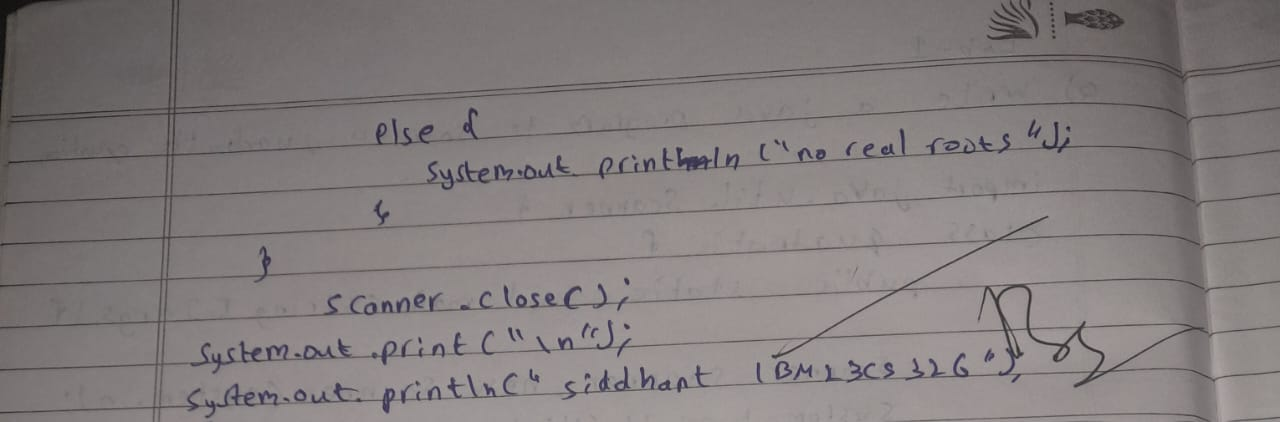 else {
System.out println ("no real roots");
}
}
scanner.close();
System.out.print ("\n");
System.out.println(" siddhant 1BM23CS326");